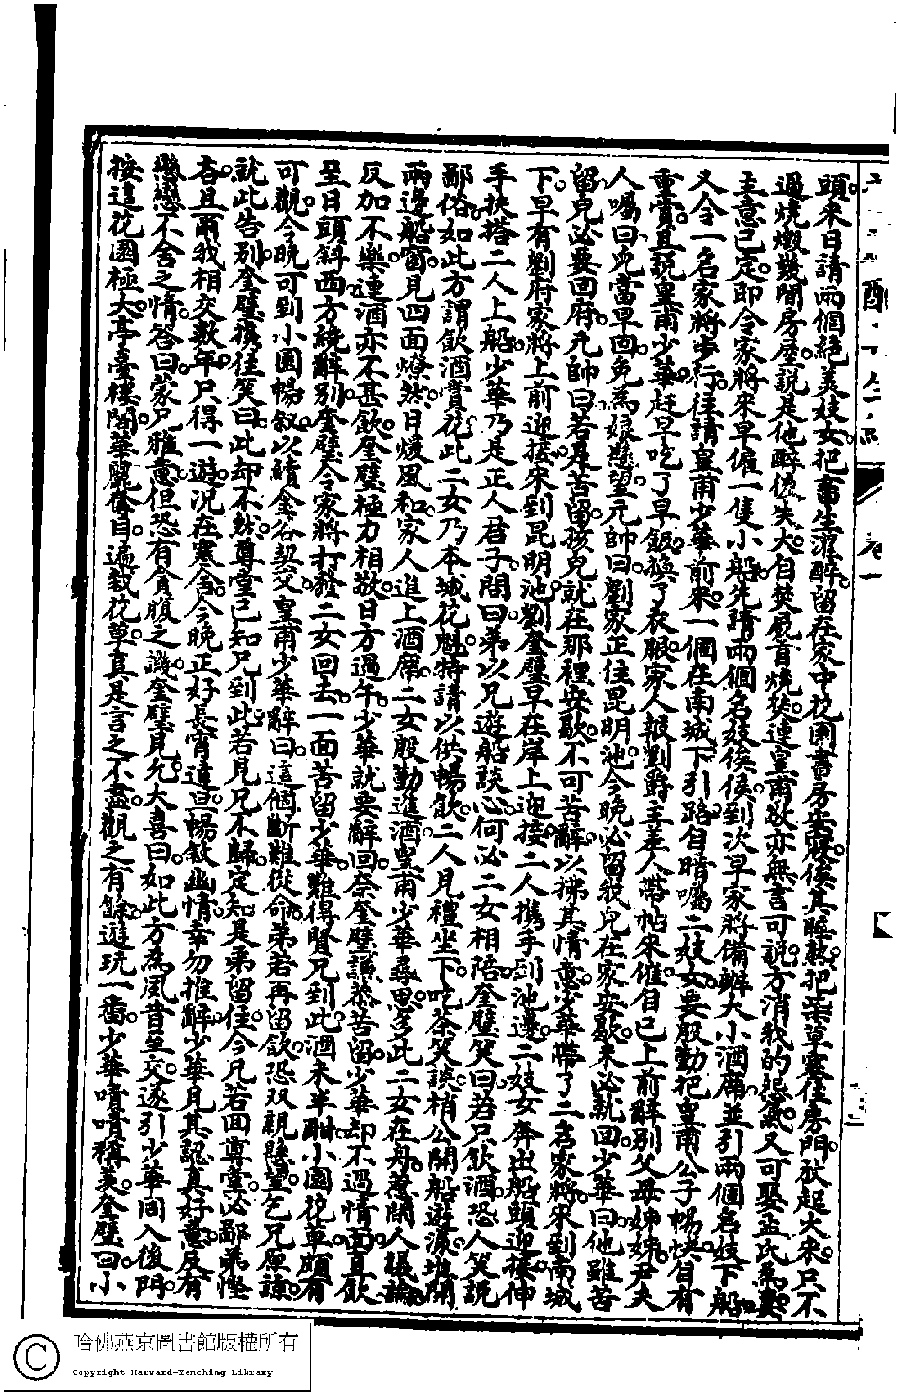 頭來日請兩個絕美妓女把畜生灌醉留在家中花園書房安寢候其睡熟把柴草塞住房門放起火來只不
過燒燬數間房屋說是他醉後失火自焚厥首燒死連皇甫敬亦無言可說方消我的怨氣又可娶孟氏為妻
主意已定即令家將來早僱一隻小船先請兩個名妓俟候到次早家將備辦大小酒席並引兩個名妓下船
又令一名家將步行往請皇甫少華前來一個在南城下引路自暗囑二妓女要殷勤把皇甫公子暢快自有
重賞且說皇甫少華趕早吃了早飯換了衣服家人報劉爵主差人帶帖來催自己上前辭別父母姊姊尹夫
人囑曰兒當早回免為娘懸望元帥曰劉家正住昆明池今晚必留我兒在家安歇來必就回少華曰他雖苦
留兒必要回府元帥曰若是苦留孩兒就在那裡安歇不可苦辭以拂其情意少華帶了二名家將來到南城
下早有劉府家將上前迎接來到昆明池劉奎璧早在岸上迎接二人携手到池邊二妓女奔出船頭迎接伸
手扶搭二人上船少華乃是正人君子問曰弟以兄遊船談心何必二女相陪奎璧笑曰若只飲酒恐人笑說
鄙俗如此方謂飲酒賞花此二女乃本城花魁特請以供暢飲二人見禮坐下吃茶笑談梢公開船遊湖推開
兩邊船窗見四面燎然日煖風和家人進上酒席二女殷勤進酒皇甫少華尋思多此二女在舟惹閑人議論
反加不樂連酒亦不甚飲奎璧極力相敬日方過午少華就要辭回奈奎璧謙恭苦留少華却不過情面直飲
至日頭斜西方纔辭別奎璧令家將打發二女回去一面苦留少華難得賢兄到此酒未半酣小園花草頗有
可觀今晚可到小園暢叙以續金谷契父皇甫少華辭曰這個斷難從命弟若再留飲恐双親懸望乞兄原諒
就此告別奎璧攙住笑曰此却不然尊堂已知兄到此若見兄不歸定知是弟留住今兄若回尊堂必鄙弟慳
吝且爾我相交數年只得一遊况在寒舍今晚正好長宵達旦暢叙幽情幸勿推辭少華見其認真好意反有
戀戀不舍之情答曰蒙兄雅意但恐有負腹之譏奎璧見允大喜曰如此方為風昔至交遂引少華同入後門
按這花園極大亭臺樓閣華麗奪目遍栽花草真是言之不盡觀之有餘遊玩一番少華嘖嘖稱美奎璧曰小
哈佛燕京圖書館版權所有
Copyright Harvard-Yenching Library